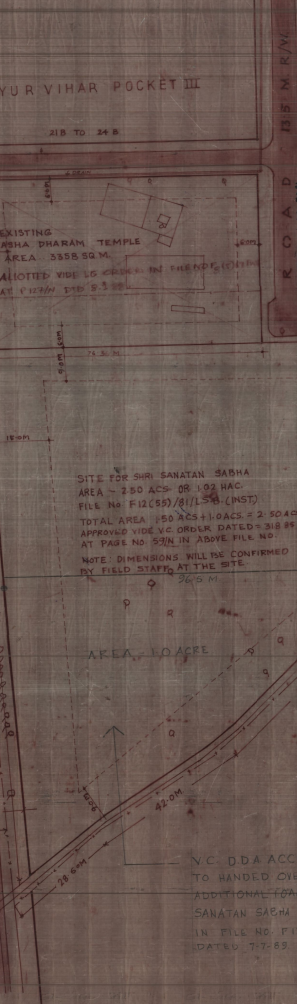 YUR VIHAR POCKET III
21B TO 24B
ROAD 13.5 M R/W
EXISTING
ASHA DHARAM TEMPLE
AREA 3358 SQ.M.
ALLOTTED VIDE
6.0M
N.B.M
6.0M
15.0M
SITE FOR SHRI SANATAN SABHA
AREA - 2.50 ACS OR 1.02 HAC.
FILE No F12(55)/81/LSB.(INST)
TOTAL AREA 1.50 ACS + 1.0 ACS = 2.50 AC
APPROVED VIDE V.C. ORDER DATED = 31.8.85
AT PAGE NO. 59/N IN ABOVE FILE NO.
NOTE: DIMENSIONS WILL BE CONFIRMED
BY FIELD STAFF AT THE SITE
96.5 M
AREA - 1.0 ACRE
42.0M
28.60M
V.C. D.D.A ACC
TO HANDED OV
ADDITIONAL
SANATAN SABHA
IN FILE NO. F1
DATED 7-7-83.